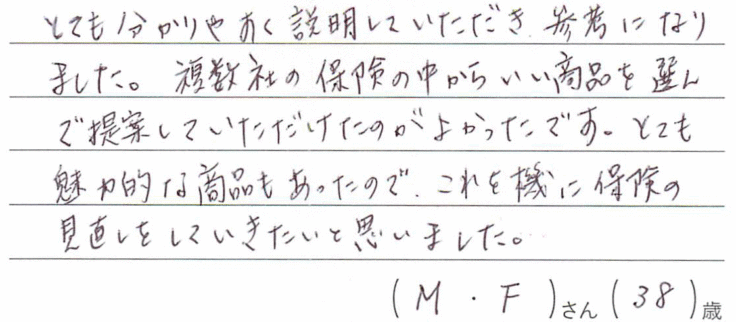 とても分かりやすく説明していただき、参考になり
ました。複数社の保険の中からいい商品を選ん
で提案していただけたのがよかったです。とても
魅力的な商品もあったので、これを機に保険の
見直しをしていきたいと思いました。
(M・F)さん(38)歳